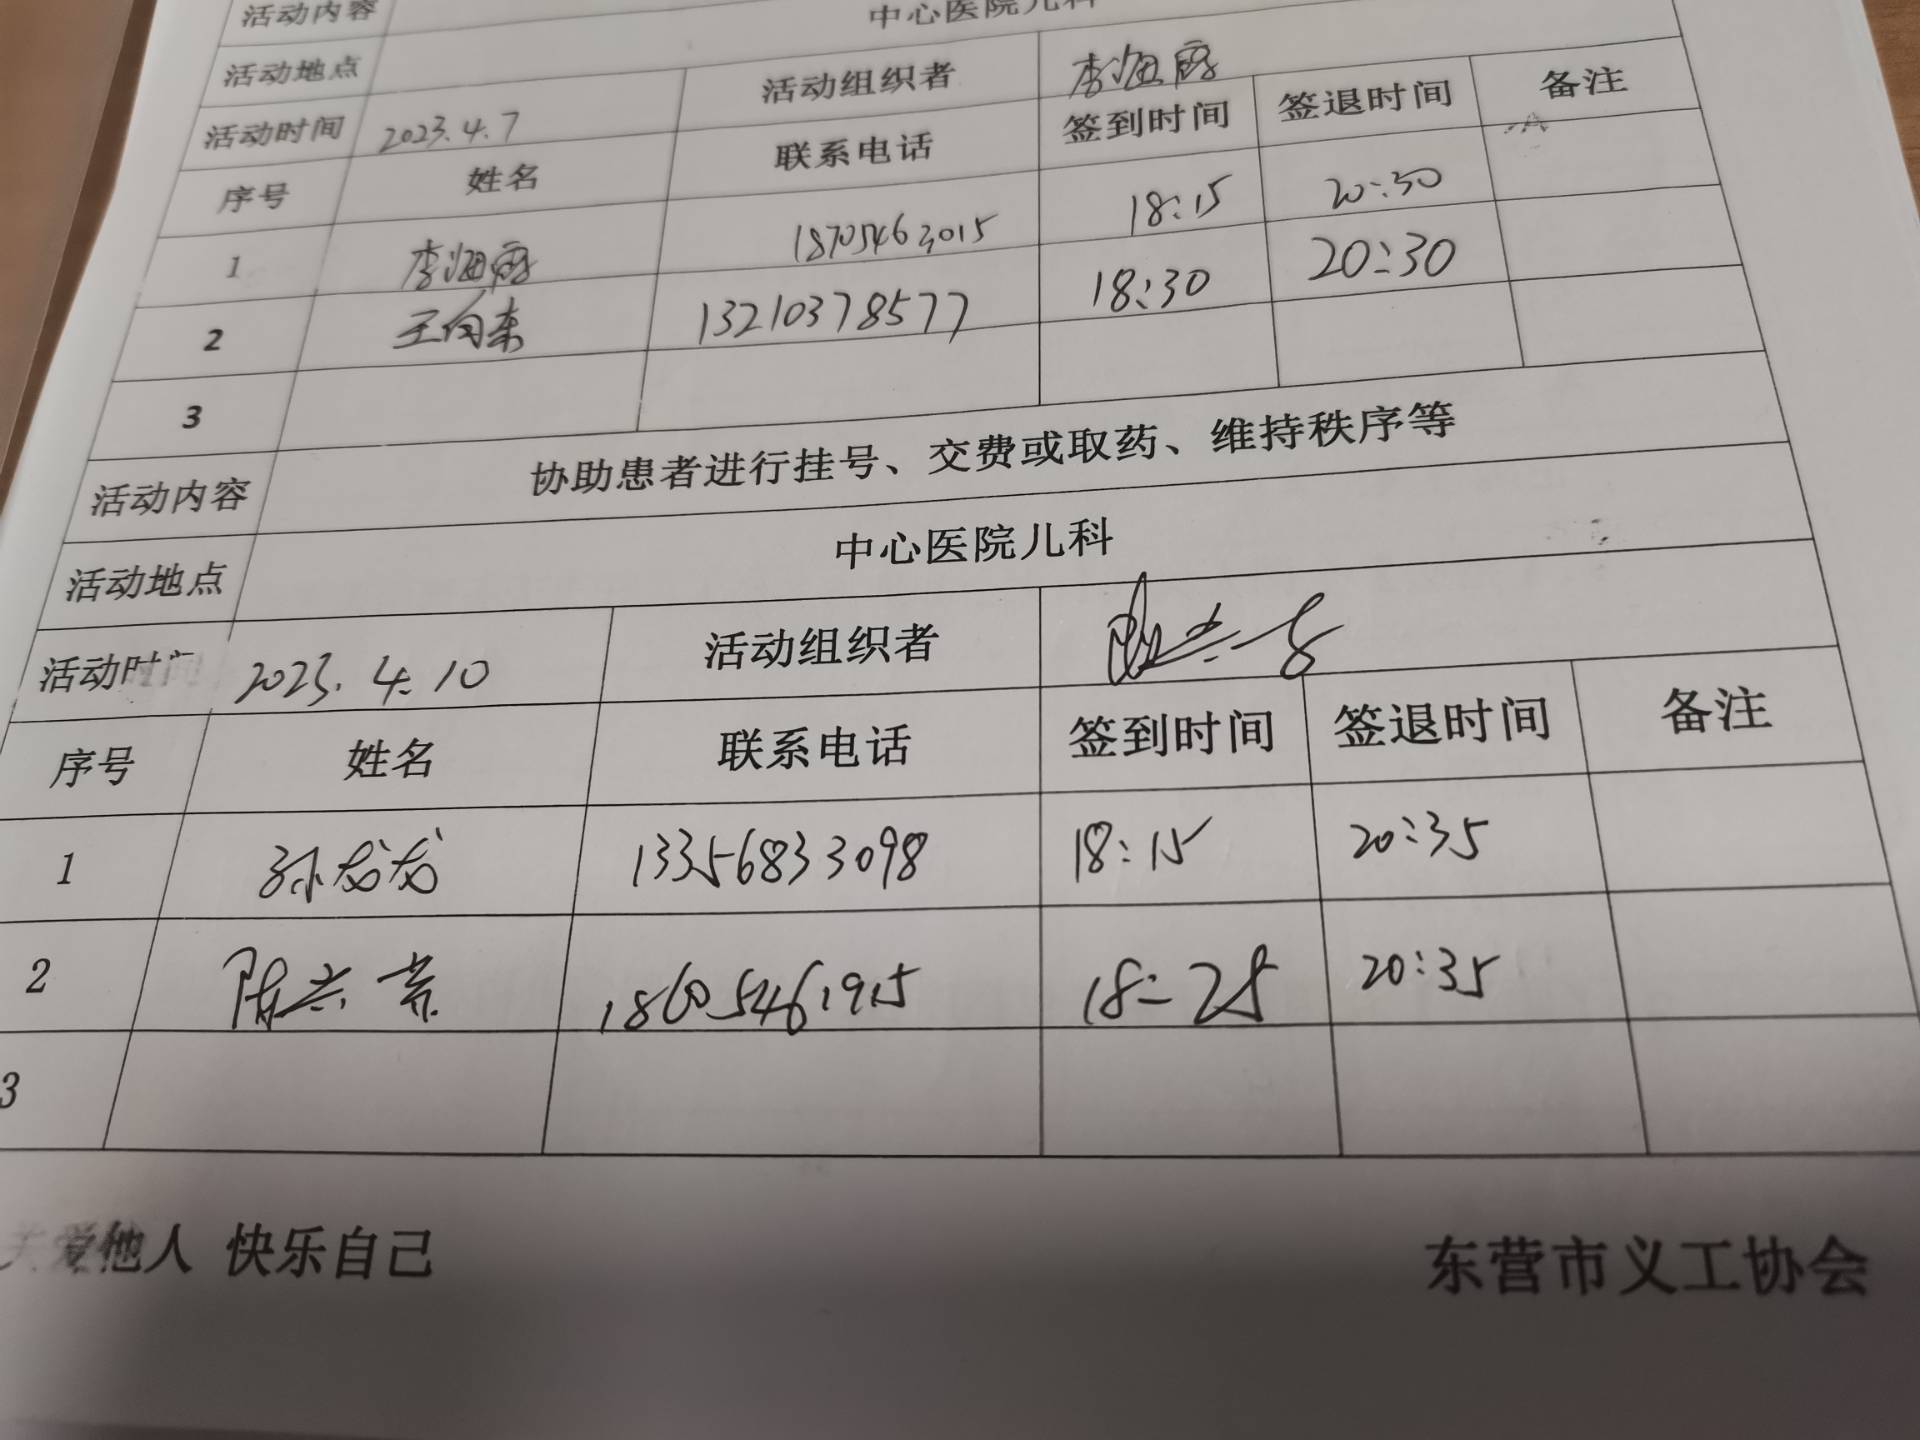 活动内容
活动地点 中心医院儿科
活动时间 2023.4.7 活动组织者 李海霞
序号 姓名 联系电话 签到时间 签退时间 备注
1 李海霞 18705463015 18:15 20:30
2 王向东 13210378577 18:30 20:30
3
活动内容 协助患者进行挂号、交费或取药、维持秩序等
活动地点 中心医院儿科
活动时间 2023.4.10 活动组织者
序号 姓名 联系电话 签到时间 签退时间 备注
1 孙龙龙 13356833098 18:15 20:35
2 18605461915 18:25 20:35
3
关爱他人 快乐自己
东营市义工协会